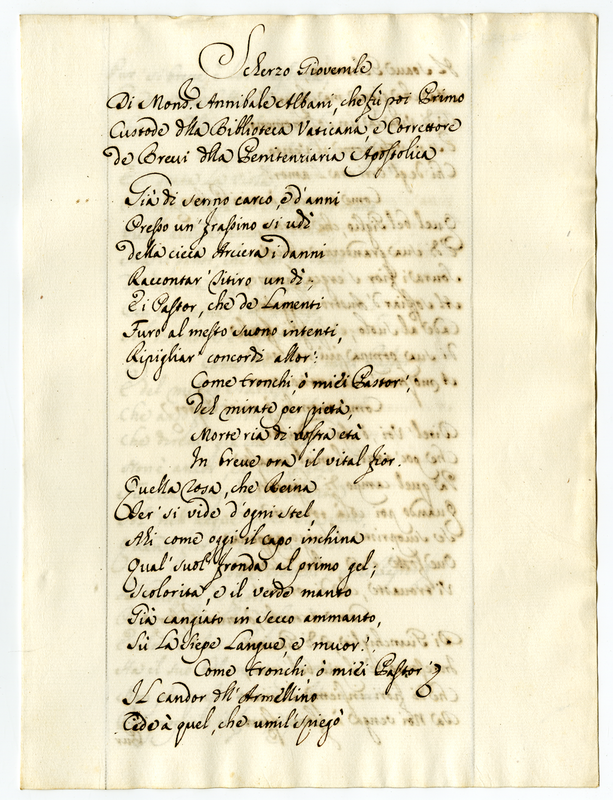 Scherzo Giovenile
Di Mons.r Annibale Albani, che fù poi Primo
Custode dlla Biblioteca Vaticana, e Correttore
de Brevi dlla Penitenziaria Apostolica
Già di senno carco, e d'anni
Presso un' frassino si udì
della cieca Arciera i danni
Raccontar' Titiro un dì;
E i Pastor, che de Lamenti
Furo al mesto suono intenti,
Ripigliar' concordi allor':
Come tronchi, ò miei Pastor',
Deh mirate per pietà,
Morte ria di vostra età
In breve ora il vital fior.
Quella rosa, che Reina
Per' si vide d'ogni stel,
Ahi come oggi il capo inchina
Qual' suol' fronda al primo gel;
Scolorita, e il verde manto
Già cangiato in secco ammanto,
Sù La siepe Langue, e muor'.
Come tronchi, ò miei Pastor'
IL candor dll' Armellino
Cede à quel, che umil' spiegò